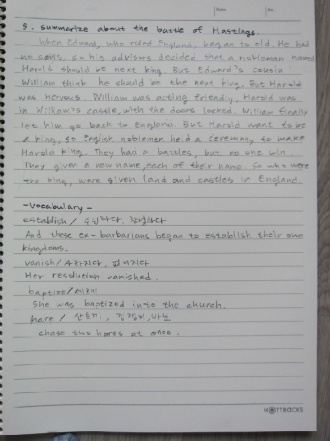 Date
No.
5. summarize about the battle of Hastings.
When Edward, who ruled England, began to old. He had
no sons, so his advisors decided that a nobleman named
Harold should be next king. But Edward's cousin
William think he should be the next king. But Harold
was nervous. William was acting friendly, Harold was
in William's castle, with the doors locked. William finally
let him go back to England. But Harold want to be
a king, so English noblemen held a ceremony to make
Harold king. They had a battles, but no one win.
They given a new name, each of their name. So who were
the king, were given land and castles in England.
-vocabulary-
establish/
And these ex-barbarians began to establish their own
kingdoms.
vanish/ 사라지다, 없어지다
Her resolution vanished.
baptize/
She was baptized into the church.
hare /
chase two hares at once.
HOTTRACKS